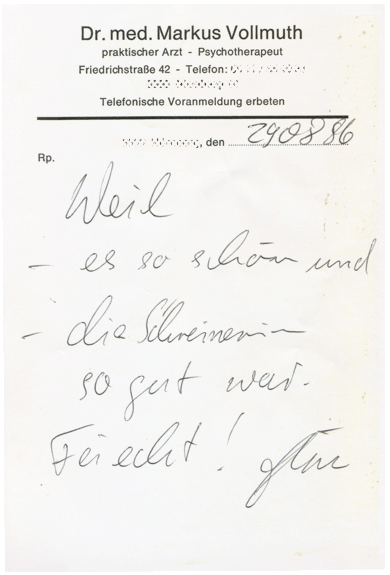 Dr. med. Markus Vollmuth
praktischer Arzt - Psychotherapeut
Friedrichstraße 42 - Telefon:
Telefonische Voranmeldung erbeten
, den 290886
Rp.
Weil
- es so schön und
- die Schreinerin
so gut war.
!